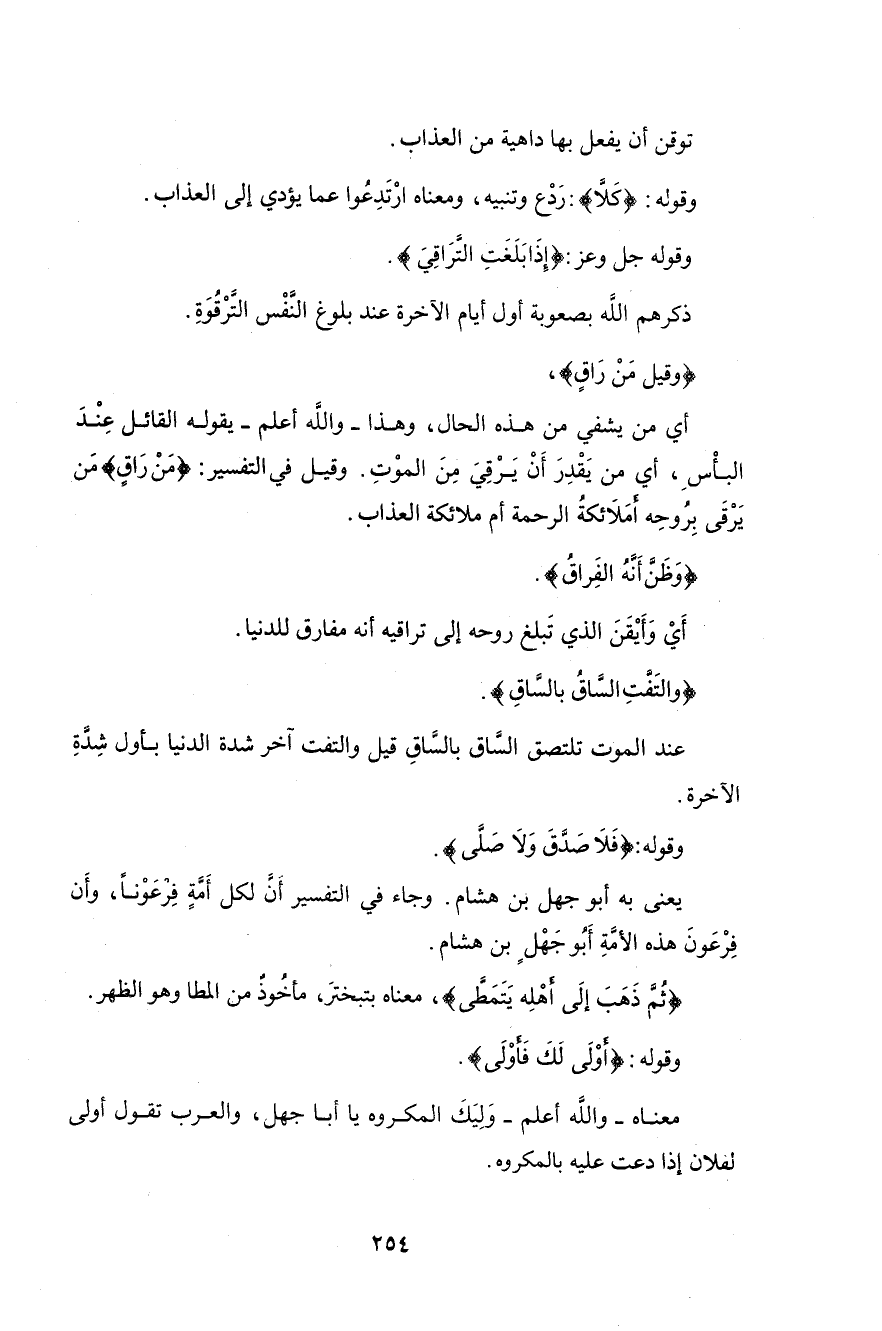 توقن أن يفعل بها داهية من العذاب.
وقوله: ﴿كَلَّا﴾: رَدْع وتنبيه، ومعناه ارْتَدِعُوا عما يؤدي إلى العذاب.
وقوله جل وعز: ﴿إِذَا بَلَغَتِ التَّرَاقِيَ﴾.
ذكرهم اللَّه بصعوبة أول أيام الآخرة عند بلوغ النَّفْس التَّرْقُوَةِ.
﴿وقيل مَنْ رَاقٍ﴾،
أي من يشفي من هذه الحال، وهذا ـ واللَّه أعلم ـ يقوله القائل عِنْدَ
البأْسِ، أي من يَقْدِرَ أَنْ يَرْقِيَ مِنَ الموْتِ. وقيل في التفسير: ﴿مَنْ رَاقٍ﴾ مَن
يَرْقَى بِرُوحِه أَمَلَائكةُ الرحمة أم ملائكة العذاب.
﴿وَظَنَّ أَنَّهُ الفِراقُ﴾.
أَيْ وَأَيْقَنَ الذي تَبلغ روحه إلى تراقيه أنه مفارق للدنيا.
﴿والتَفَّتِ السَّاقُ بالسَّاقِ﴾.
عند الموت تلتصق السَّاق بالسَّاقِ قيل والتفت آخر شدة الدنيا بأول شِدَّةِ
الآخرة.
وقوله: ﴿فَلَا صَدَّقَ وَلَا صَلَّى﴾.
يعنى به أبو جهل بن هشام. وجاء في التفسير أَنَّ لكل أُمَّةٍ فِرْعَوْناً، وأَن
فِرْعَونَ هذه الأمَّةِ أَبُو جَهْلٍ بن هشام.
﴿ثُمَّ ذَهَبَ إلَى أَهْلِه يَتَمَطَّى﴾، معناه يتبخترَ، مأخُوذٌ من المطا وهو الظهر.
وقوله: ﴿أَوْلَى لَكَ فَأَوْلَى﴾.
معناه ـ واللَّه أعلم ـ وَلِيَكَ المكروه يا أبا جهل، والعرب تقول أولى
لفلان إذا دعت عليه بالمكروه.
٢٥٤